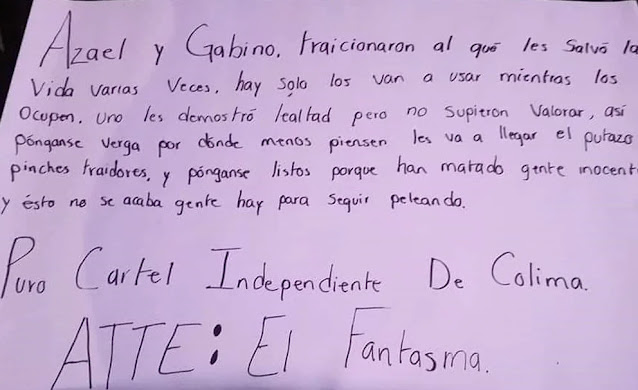 Azael y Gabino. traicionaron al qué les Salvó la
Vida varias veces. hay solo los van a usar mientras los
Ocupen. Uno les demostró lealtad pero no Supieron Valorar, así
pónganse verga por dónde menos piensen les va a llegar el putazo
pinches traidores, y pónganse listos porque han matado gente inocent
y ésto no se acaba gente hay para Seguir peleando.
Puro Cartel Independiente De Colima.
ATTE: El Fantasma.